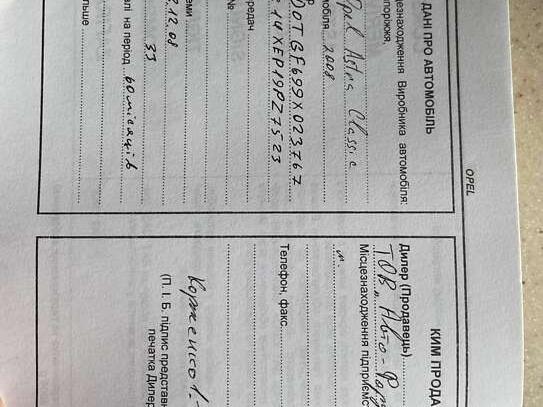 OPEL
ДАНІ ПРО АВТОМОБІЛЬ
цезнаходження Виробника автомобіля:
поріжжя,
Opel Astra Classic
мобіля 2008
DOTGF699X023767
14XEP19P27523
редач
№
еми
.12.08
33
алі на період 60 місяців
льше
КИМ ПРОДА
Дилер (Продавець)
ТОВ "Авто-
Місцезнаходження підприємс
м.
Телефон, факс
(П. І. Б. підпис представн
печатка Дилер